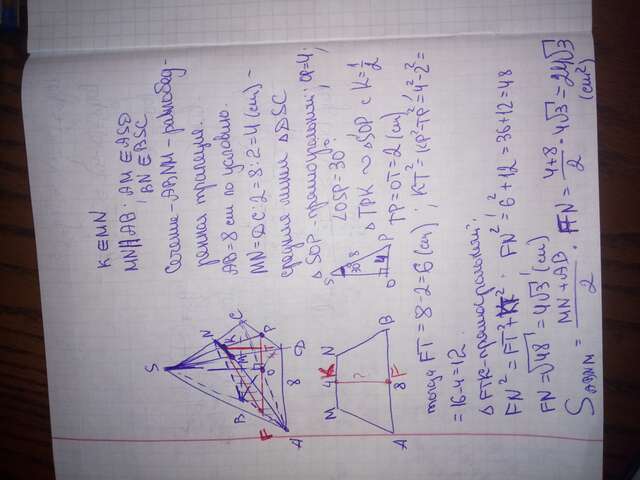 K ∈ MN
MN ∥ AB. AM ∈ ASD
BN ∈ BSC
Сечение - ABNM - равнобед-
ренная трапеция.
AB = 8 см по условию.
MN = DC:2 = 8:2 = 4 (см) -
средняя линия △DSC
△SOP - прямоугольный; OP = 4,
∠OSP = 30°
△TPK ~ △SOP с K = 1/2
TP = OT = 2 (см)
тогда FT = 8 - 2 = 6 (см); KT² = KP² - TP² = 4² - 2² =
= 16 - 4 = 12.
△FTK - прямоугольный.
FN² = FT² + KT². FN² = 6² + 12 = 36 + 12 = 48
FN = √48 = 4√3 (см)
S ABNM = (MN + AB)/2 · FN = (4 + 8)/2 · 4√3 = 24√3
(см²)
S
N
C
K
M
P
B
O
D
F
8
A
S
30°
8
O
4
P
M
4
K
N
?
A
8
F
B